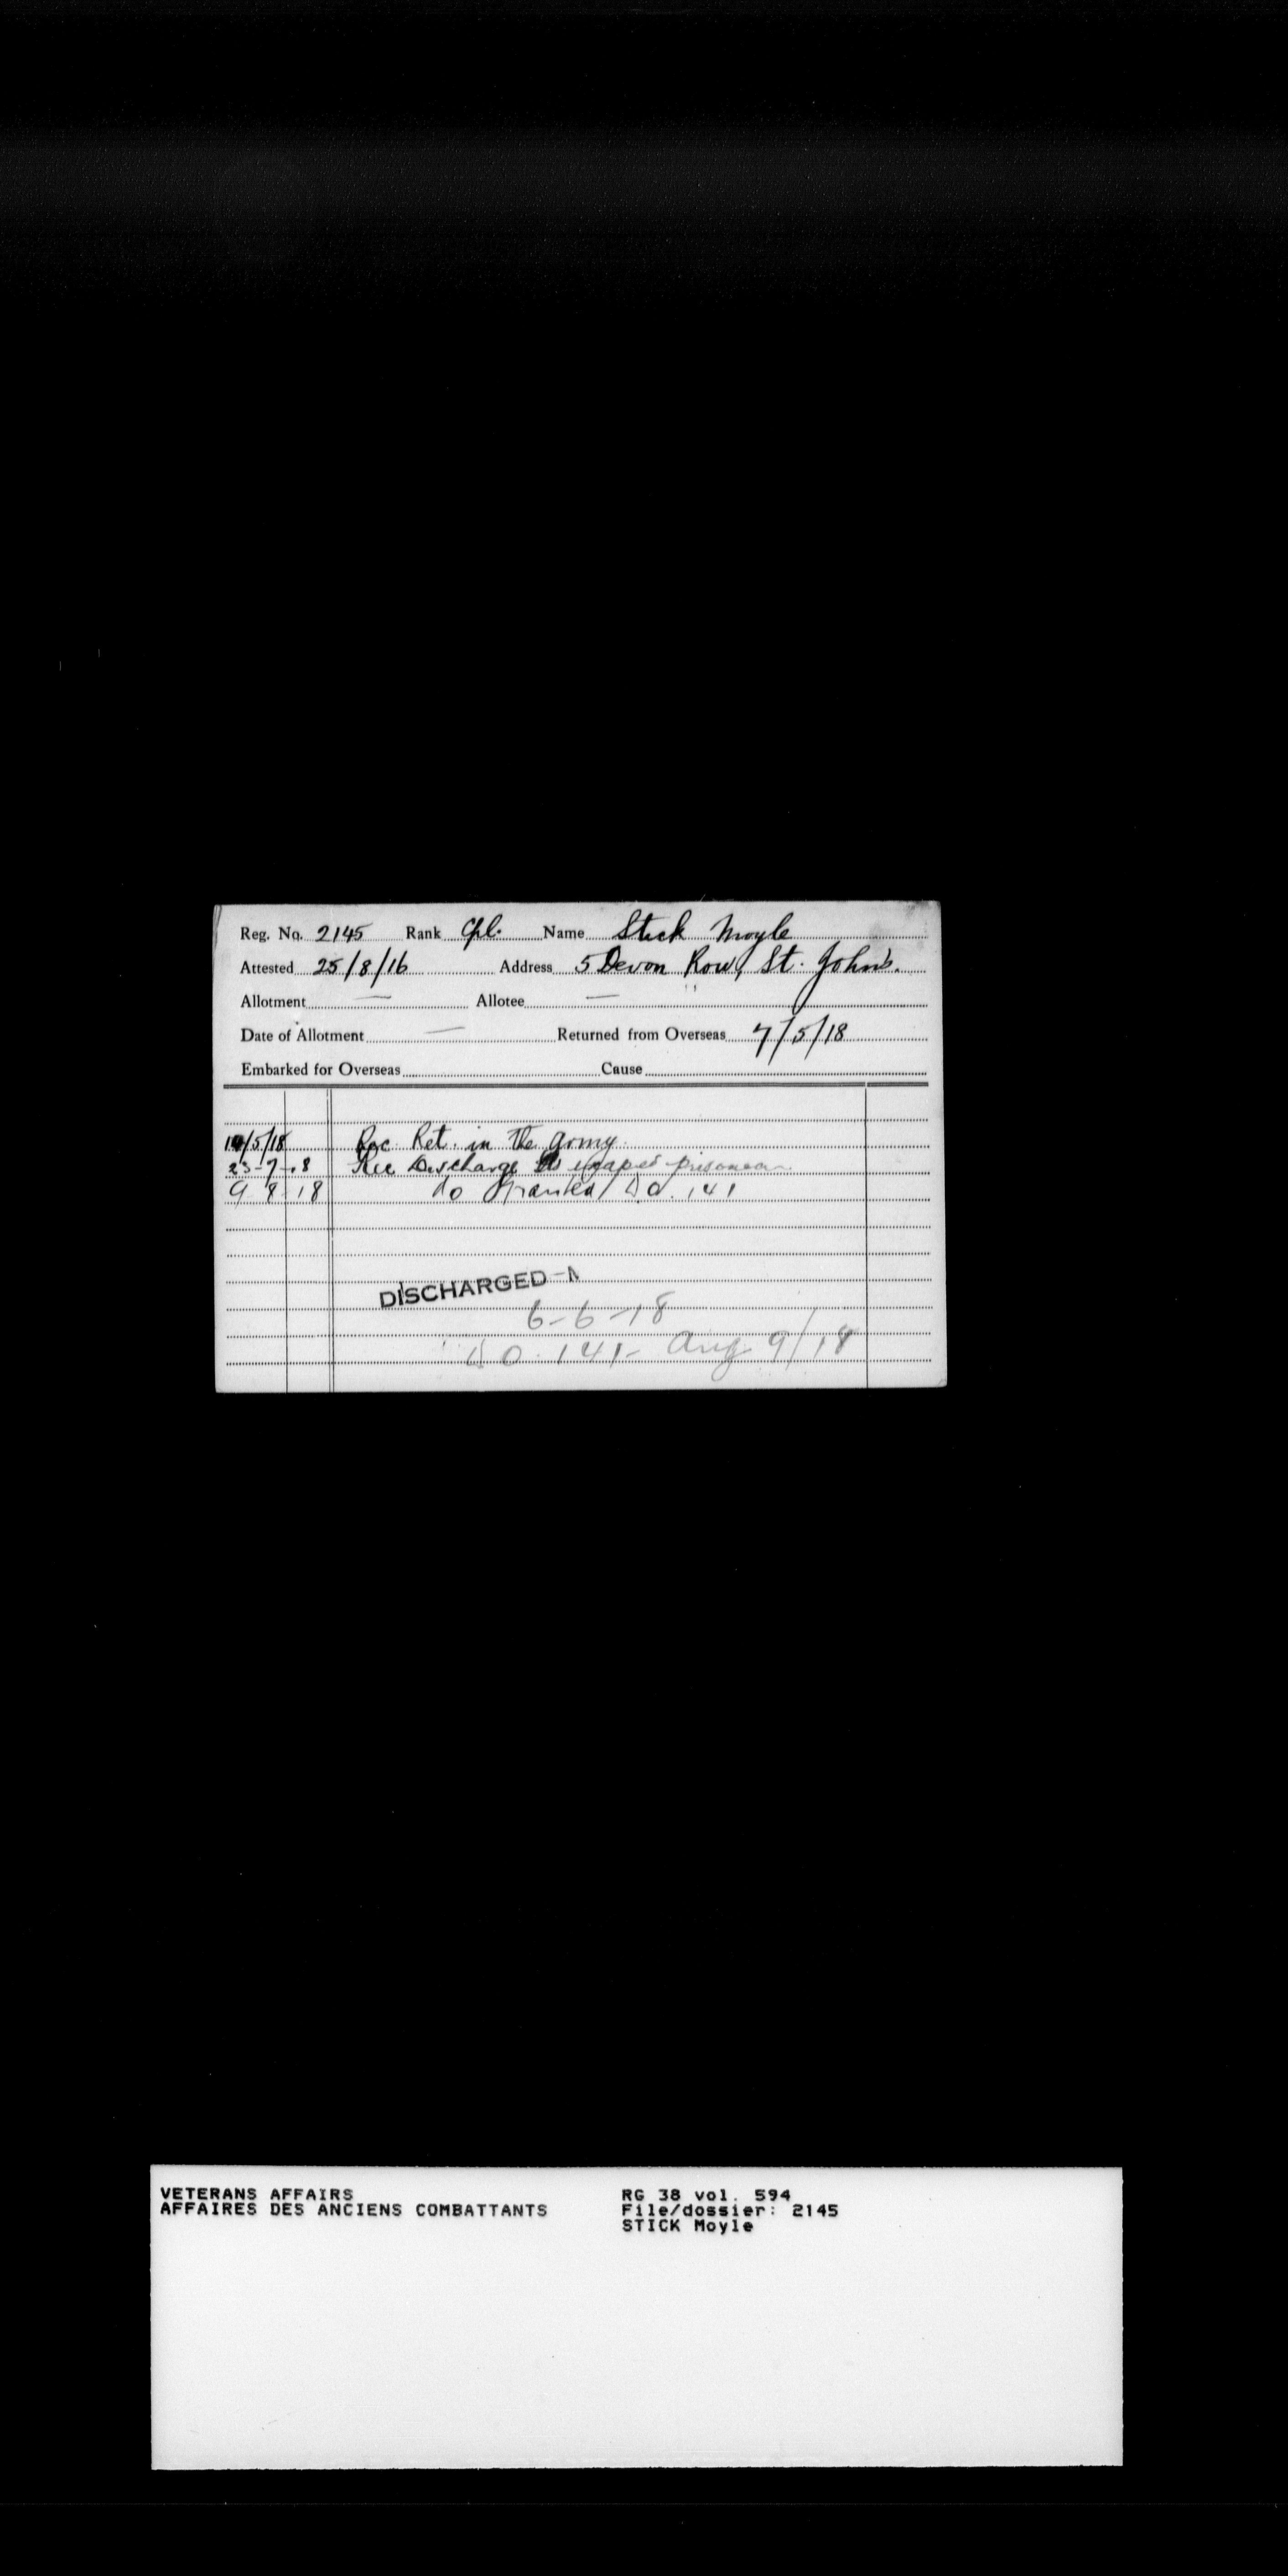 Reg. No. 2145 Rank Cpl. Name Stick Moyle
Attested 25/8/16 Address 5 Devon Row, St. John's.
Allotment — Allotee —
Date of Allotment — Returned from Overseas 7/5/18
Embarked for Overseas Cause
14/5/18 Rec Ret. in the Army
23-7-18 Rec Discharge as escaped prisoner
9 8 18 do Granted D.O. 141
DISCHARGED
6-6-18
D.O. 141- Aug 9/18
VETERANS AFFAIRS
AFFAIRES DES ANCIENS COMBATTANTS
RG 38 vol. 594
File/dossier: 2145
STICK Moyle